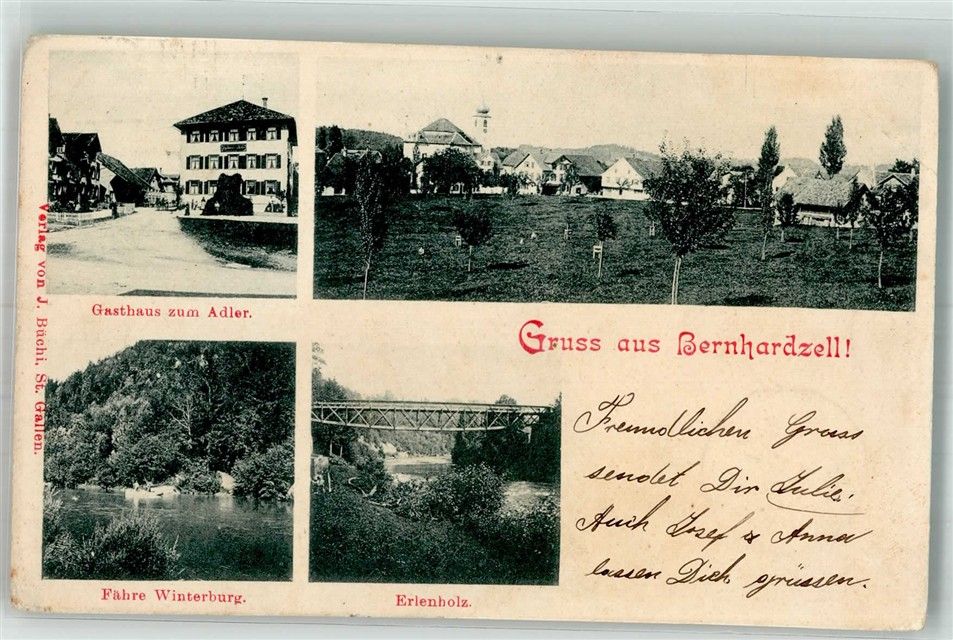 Verlag von J. Büchi, St. Gallen.
Gasthaus zum Adler.
Gruss aus Bernhardzell!
Fähre Winterburg.
Erlenholz.
Freundlichen Gruss
sendet Dir Julie.
Auch Josef & Anna
lassen Dich grüssen.